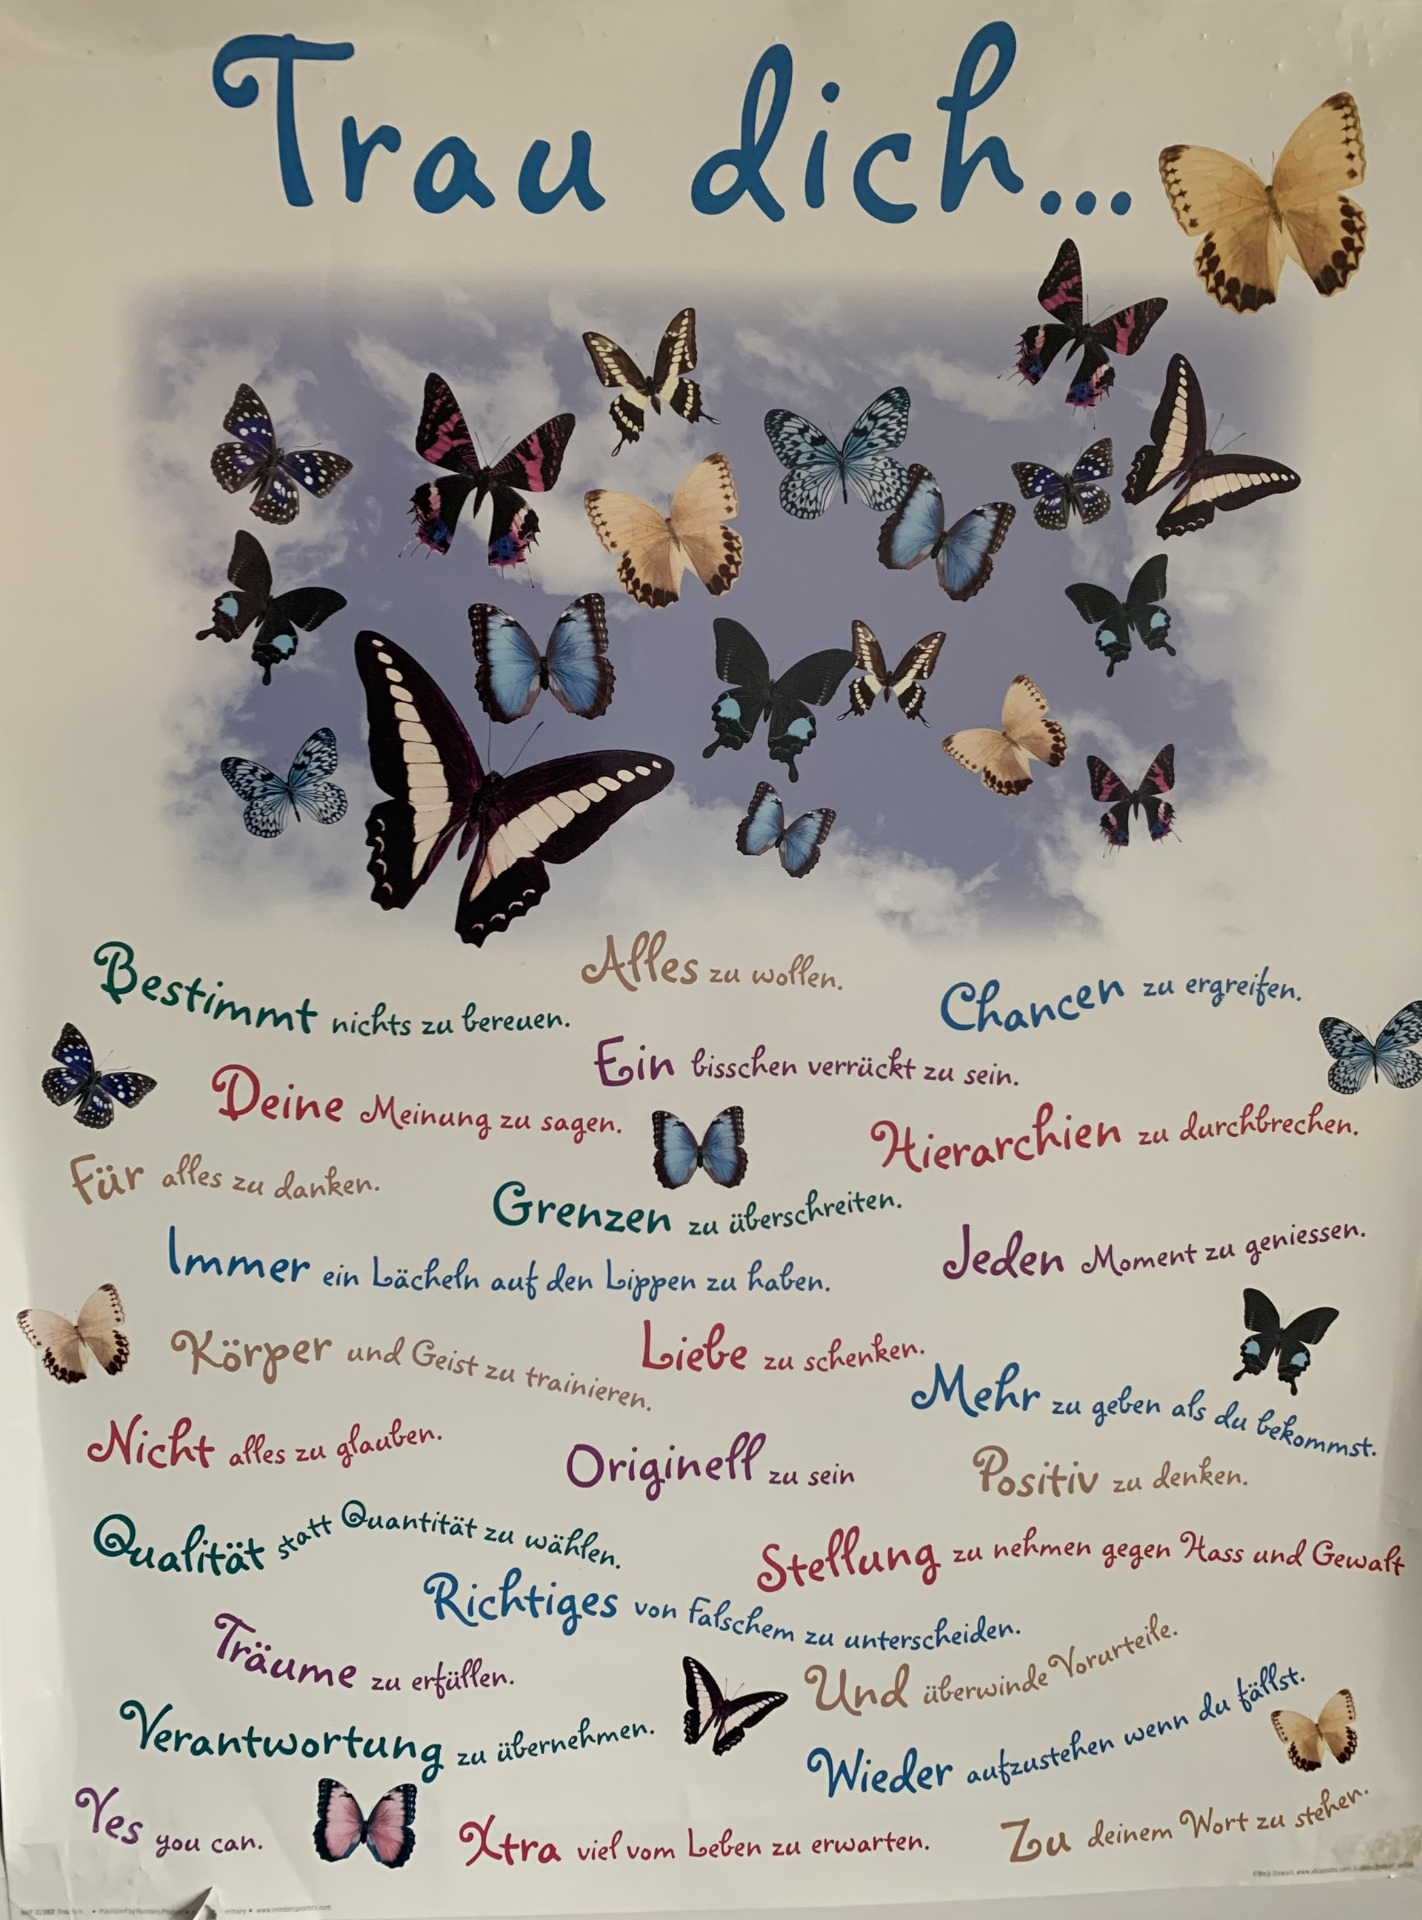 Trau dich...
Alles zu wollen.
Bestimmt nichts zu bereuen.
Chancen zu ergreifen.
Deine Meinung zu sagen.
Ein bisschen verrückt zu sein.
Für alles zu danken.
Grenzen zu überschreiten.
Hierarchien zu durchbrechen.
Immer ein Lächeln auf den Lippen zu haben.
Jeden Moment zu geniessen.
Körper und Geist zu trainieren.
Liebe zu schenken.
Mehr zu geben als du bekommst.
Nicht alles zu glauben.
Originell zu sein
Positiv zu denken.
Qualität statt Quantität zu wählen.
Richtiges von Falschem zu unterscheiden.
Stellung zu nehmen gegen Hass und Gewalt
Träume zu erfüllen.
Und überwinde Vorurteile.
Verantwortung zu übernehmen.
Wieder aufzustehen wenn du fällst.
Xtra viel vom Leben zu erwarten.
Yes you can.
Zu deinem Wort zu stehen.